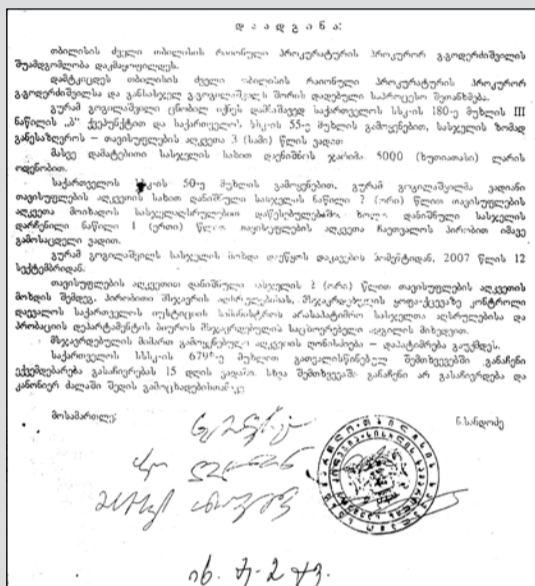 დ ა ა დ გ ი ნ ა:
თბილისის ძველი თბილისის რაიონული პროკურატურის პროკურორ გ.გოდერძიშვილის
შუამდგომლობა დაკმაყოფილდეს.
დამტკიცდეს თბილისის ძველი თბილისის რაიონული პროკურატურის პროკურორ
გ.გოდერძიშვილსა და განსასჯელ გ.გოგილაშვილს შორის დადებული საპროცესო შეთანხმება.
გურამ გოგილაშვილი ცნობილ იქნეს დამნაშავედ საქართველოს სსკ-ის 180-ე მუხლის III
ნაწილის „ბ“ ქვეპუნქტით და საქართველოს სსკ-ის 55-ე მუხლის გამოყენებით, სასჯელის ზომად
განესაზღვროს – თავისუფლების აღკვეთა 3 (სამი) წლის ვადით
მასვე დამატებითი სასჯელის სახით დაენიშნოს ჯარიმა 5000 (ხუთიათასი) ლარის
ოდენობით.
საქართველოს სსკ-ის 50-ე მუხლის გამოყენებით, გურამ გოგილაშვილმა ვადიანი
თავისუფლების აღკვეთის სახით დანიშნული სასჯელის ნაწილი 2 (ორი) წლით თავისუფლების
აღკვეთა მოიხადოს სასჯელაღსრულებით დაწესებულებაში ხოლო დანიშნული სასჯელის
დარჩენილი ნაწილი 1 (ერთი) წლით თავისუფლების აღკვეთა ჩაეთვალოს პირობით იმავე
გამოსაცდელი ვადით.
გურამ გოგილაშვილს სასჯელის მოხდა დაეწყოს დაკავების მომენტიდან, 2007 წლის 12
სექტემბრიდან.
თავისუფლების აღკვეთით დანიშნული სასჯელის 2 (ორი) წლით თავისუფლების აღკვეთის
მოხდის შემდეგ, პირობითი მსჯავრის აღსრულებისას, მსჯავრდებულის ყოფაქცევაზე კონტროლი
დაევალოს საქართველოს იუსტიციის სამინისტროს არასაპატიმრო სასჯელთა აღსრულებისა და
პრობაციის დეპარტამენტის ბიუროს მსჯავრდებულის საცხოვრებელი ადგილის მიხედვით.
მსჯავრდებულის მიმართ გამოყენებული აღკვეთის ღონისძიება – დაპატიმრება გაუქმდეს.
საქართველოს სსსკ-ის 679-ე მუხლით გათვალისწინებულ შემთხვევებში განაჩენი
ექვემდებარება გასაჩივრებას 15 დღის ვადაში. სხვა შემთხვევაში განაჩენი არ გასაჩივრდება და
კანონიერ ძალაში შედის გამოცხადებისთანავე
მოსამართლე: ნ.სანდოძე